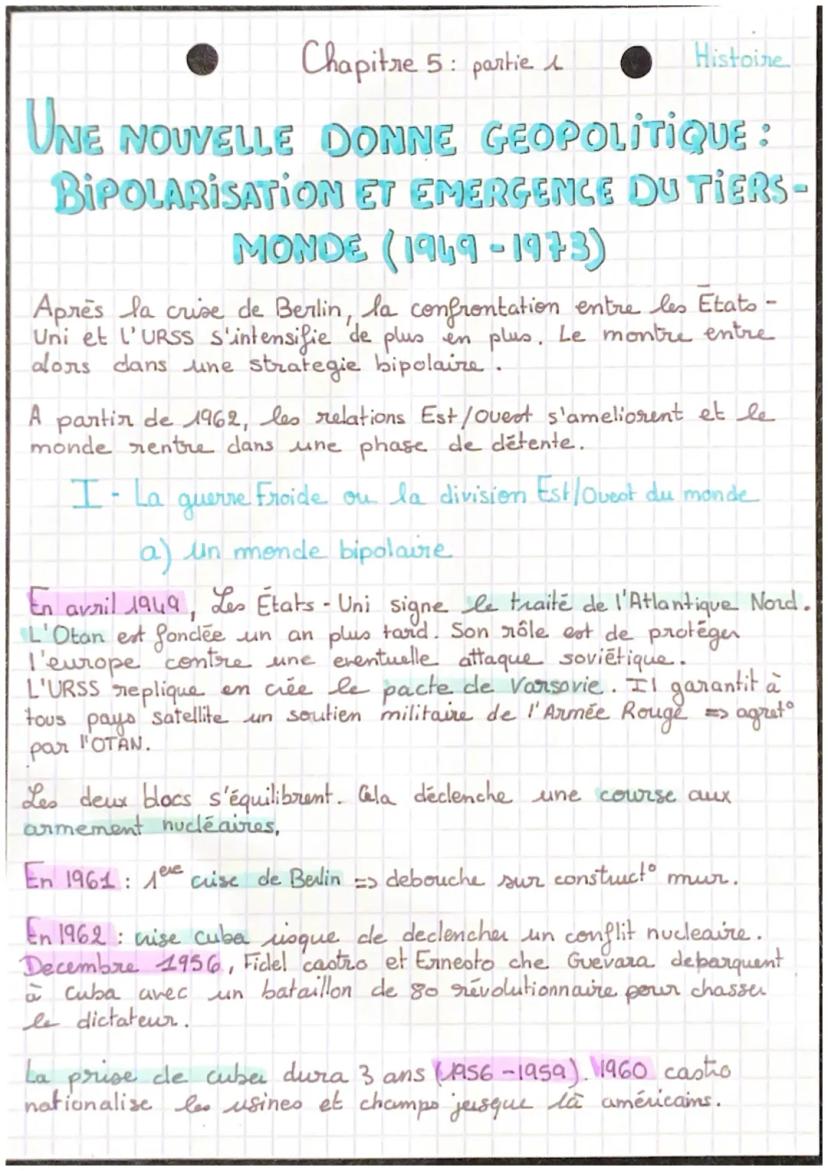 Chapitre 5 : partie 1
Histoire
UNE NOUVELLE DONNE GEOPOLITIQUE :
BIPOLARISATION ET EMERGENCE DU TIERS-
MONDE (1949-1973)
Après la crise de Berlin, la confrontation entre les États-
Uni et l'URSS s'intensifie de plus en plus. Le montre entre
alors dans une strategie bipolaire.
A partir de 1962, les relations Est/Ouest s'ameliorent et le
monde rentre dans une phase de détente.
I - La guerre Froide ou la division Est/Ouest du monde
a) Un monde bipolaire
En avril 1949, Les États-Uni signe le traité de l'Atlantique Nord.
L'Otan est fondée un an plus tard. Son rôle est de protéger
l'europe contre une eventuelle attaque soviétique.
L'URSS replique en crée le pacte de Varsovie. Il garantit à
tous pays satellite un soutien militaire de l'Armée Rouge => agret°
par l'OTAN.
Les deux blocs s'équilibrent. Cela déclenche une course aux
armement nucléaires,
En 1961 : 1ere crise de Berlin => debouche sur construct° mur.
En 1962 : crise cuba risque de declencher un conflit nucleaire.
Decembre 1956, Fidel castro et Ernesto che Guevara debarquent
à Cuba avec un bataillon de 80 révolutionnaire pour chasser
le dictateur.
La prise de cuba dura 3 ans (1956-1959). 1960 castro
nationalise les usines et champs jusque là américains.